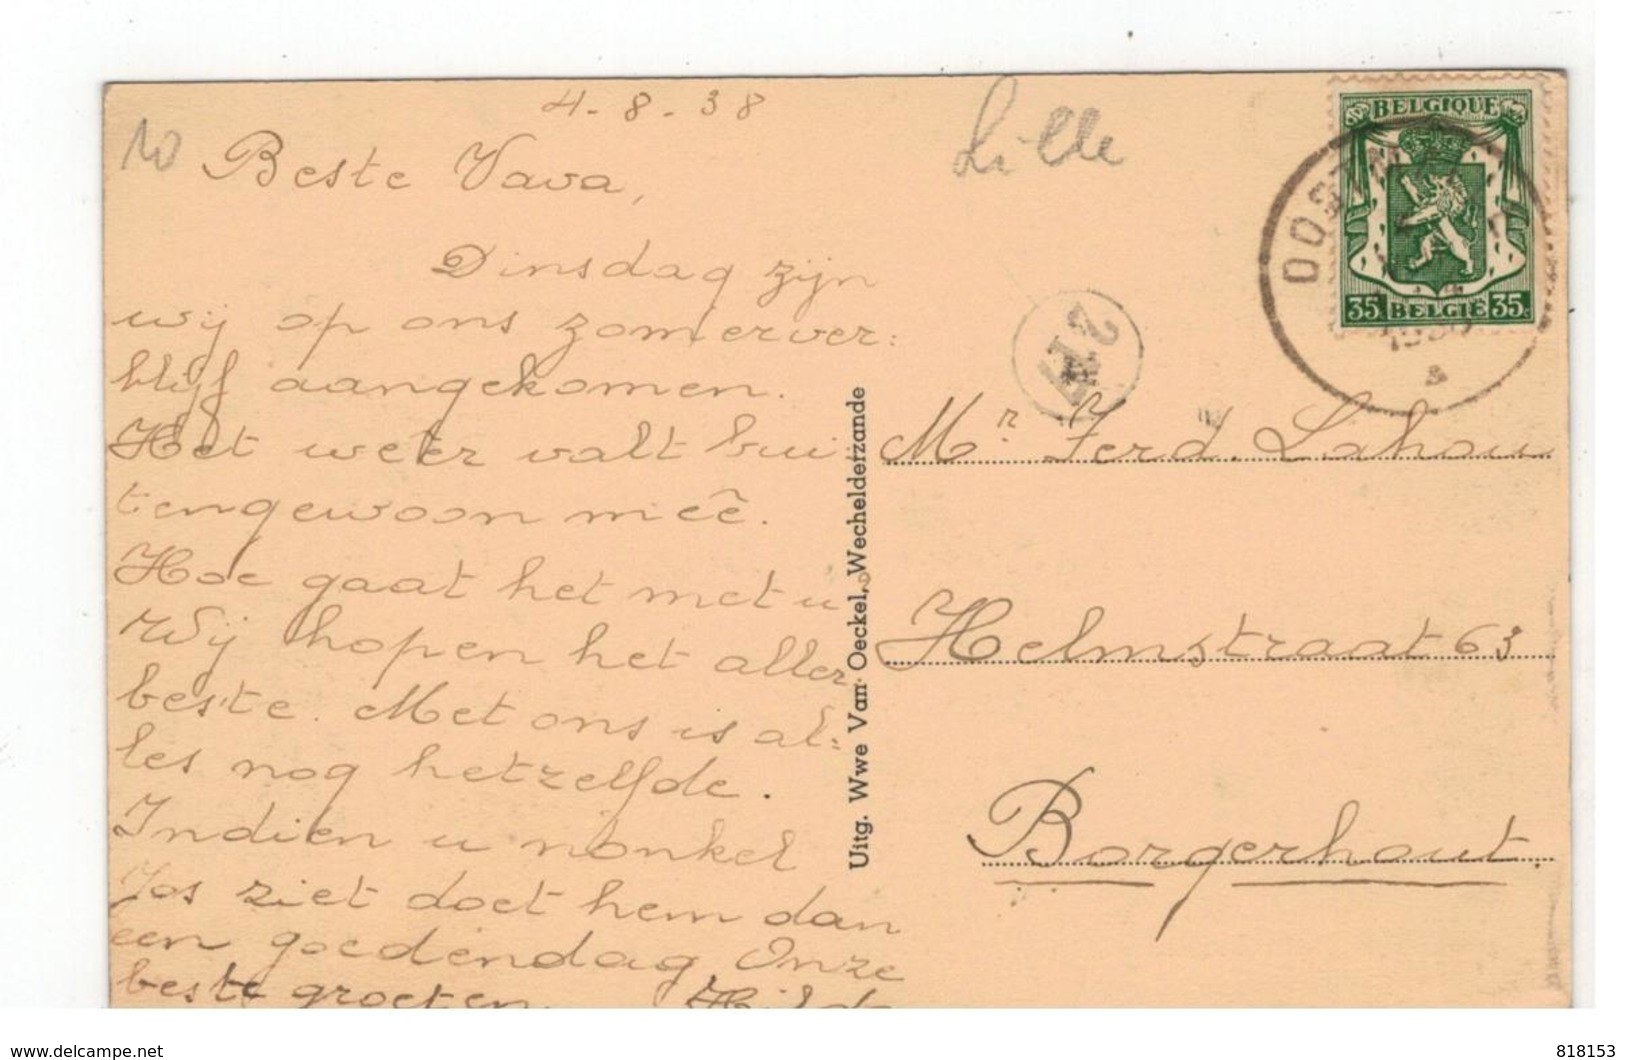 4-8-38
10
Lille
Beste Vava,
Dinsdag zijn
wij op ons zomerver:
blijf aangekomen.
Het weer valt bui
tengewoon meê.
Hoe gaat het met u?
Wij hopen het aller
beste. Met ons is al:
les nog hetzelfde.
Indien u nonkel
Jos ziet doet hem dan
een goedendag Onze
beste groeten.
Uitg. Wwe Van Oeckel, Wechelderzande
BELGIQUE
35 BELGIË 35c
Mr. Ferd. Lahou
Helmstraat 63
Borgerhout.
www.delcampe.net
818153